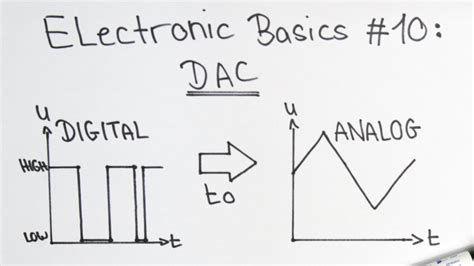 ELectronic Basics #10:
DAC
u
DIGITAL
HIGH
LOW
t
to
u
ANALOG
t